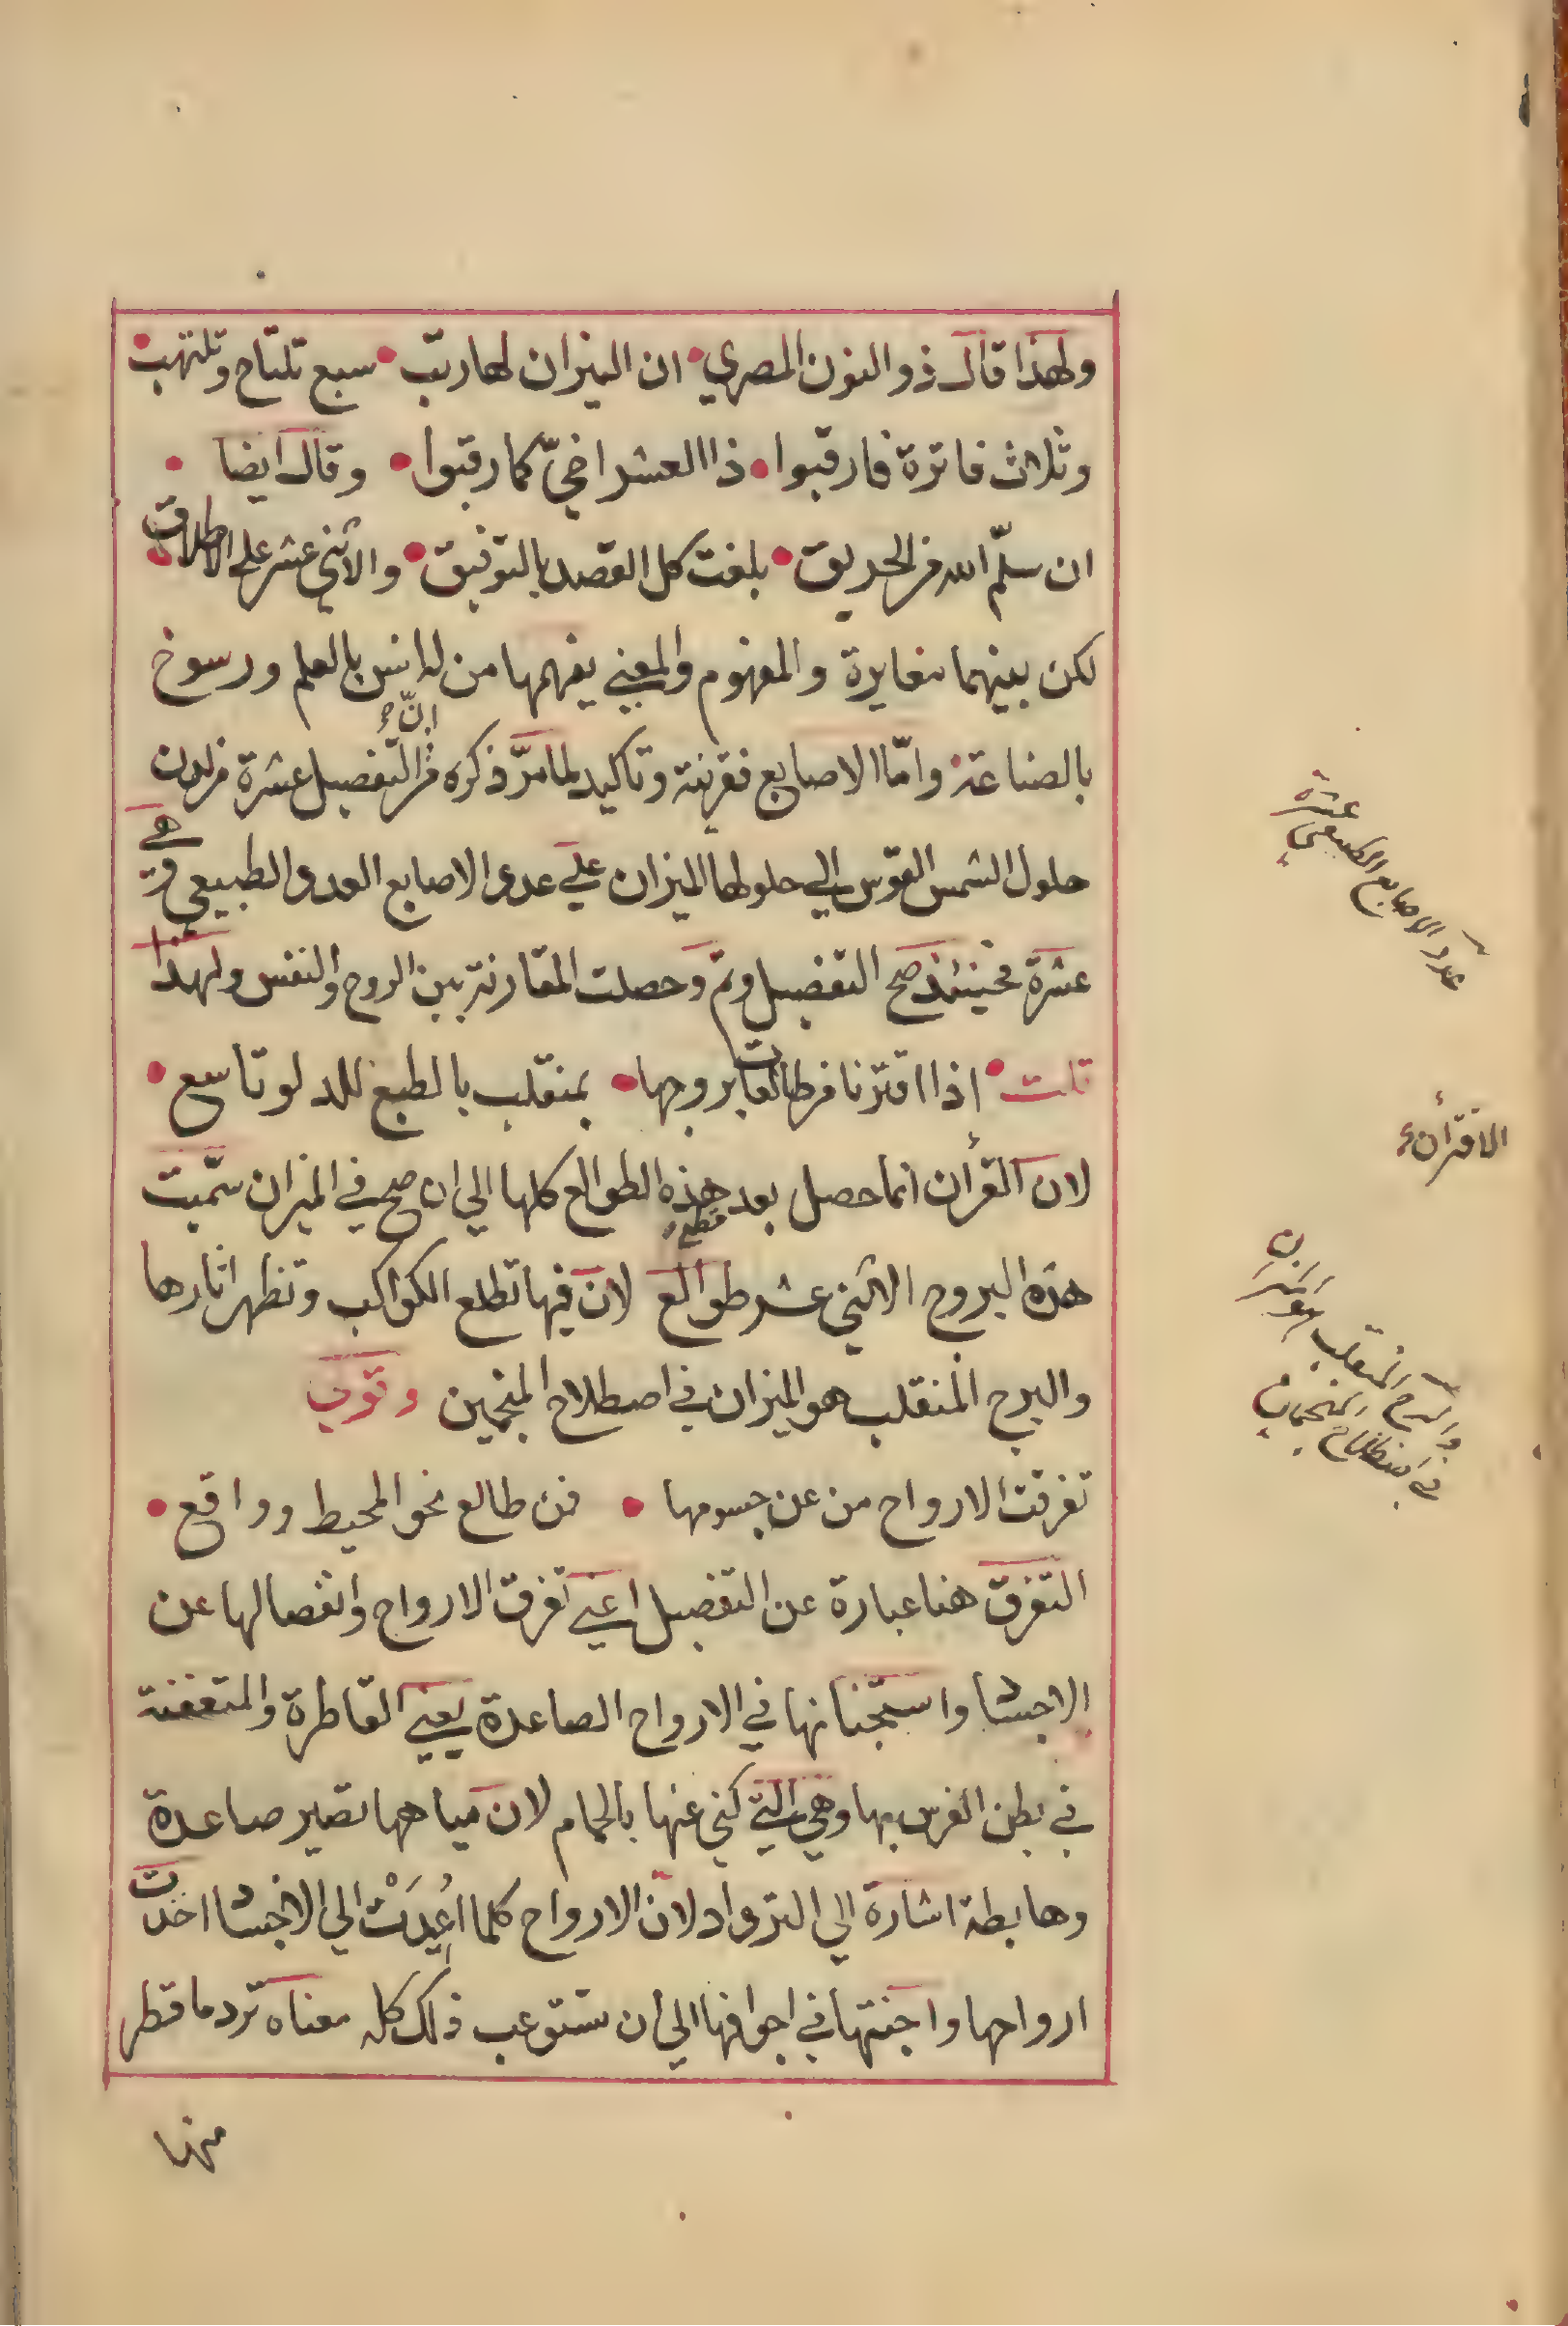 ولهذا قال ذو النون المصري • ان النيران لها رتب • سبع تلتاح وتلتهب •
وثلاث فاترة فارقبوا • ذا العشر اخيّ كما رقبوا • وقال ايضا •
ان سلّم الله من الحريق • بلغت كل القصد بالتوفيق • والاثني عشر على الاطلاق
لكن بينهما مغايرة والمفهوم والمعني يفهمها من له انس بالعلم ورسوخ
بالصناعة • وامّا الاصابع فقرينة وتاكيد لما مرّ ذكره من انّ التفصيل عشرة من لدن
حلول الشمس القوس الي حلولها الميزان علي عدد الاصابع العدد الطبيعي هي
عشرة فحينئذ صح التفصيل وتم وحصلت المقارنة بين الروح والنفس ولهذا
قلت • اذا اقترنا من طالعات بروجها • بمنقلب بالطبع للدلو تاسع •
لان القرأن انما حصل بعد قطع هذه الطوالع كلها الي ان صح في الميزان سمّيت
هذه البروج الاثني عشر طوالع لان فيها تطلع الكواكب وتظهر اثارها
والبرج المنقلب هو الميزان في اصطلاح المنجمين وقولي
تفرقت الارواح من عن جسومها • فمن طالع نحو المحيط وواقع •
التفرق هنا عبارة عن التفصيل اعني تفرق الارواح وانفصالها عن
الاجساد واستجنانها في الارواح الصاعدة يعني القاطرة والمتعفنة
في بطن الفرس بها وهي التي كني عنها بالحمام لان مياهها تصير صاعدة
وهابطة اشارة الي الترداد لان الارواح كلما اُعِيدَتْ الي الاجساد اخذت
ارواحها واجنتها في اجوافها الي ان تستوعب ذلك كله معناه ترد ما قطر
منها
عدد الاصابع الطبيعي عشرة
الاقتران
والبرج المنقلب هو الميزان
في اصطلاح المنجمين